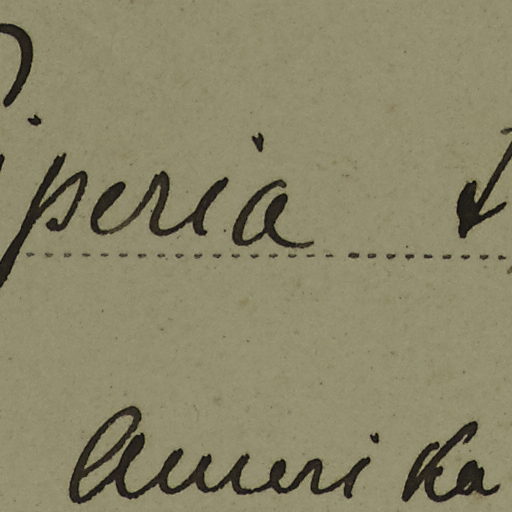 Piperia
Amerika